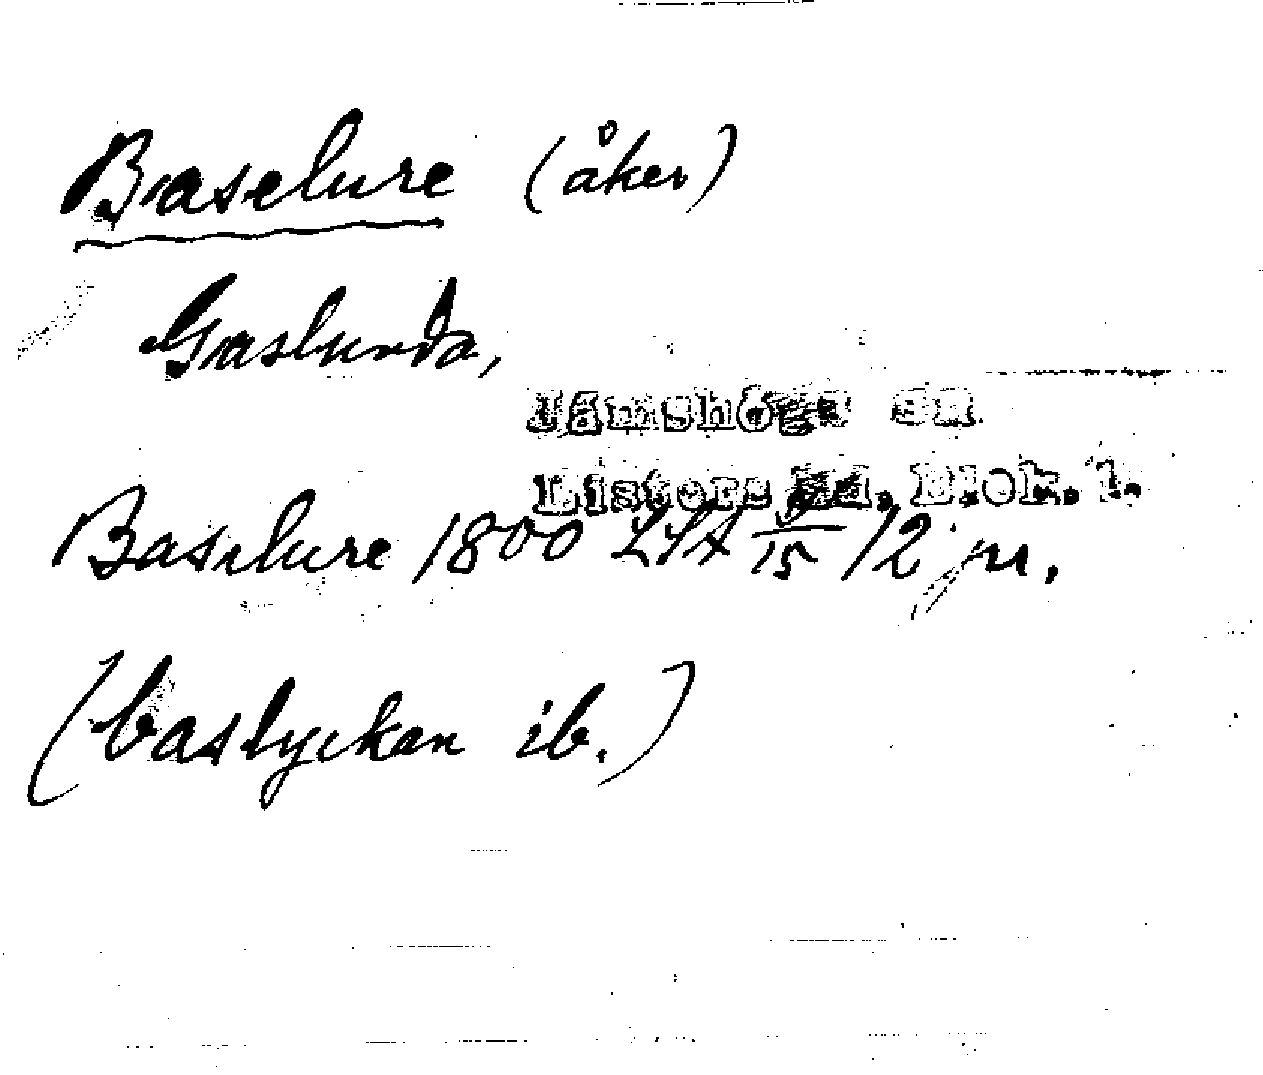 Baselure (åker)
Gaslunda,
Jämshögs sn
Listers hd. Blek. l.
Baselure 1800 LSA 9/15 12 jr.
(baslyckan ib.)